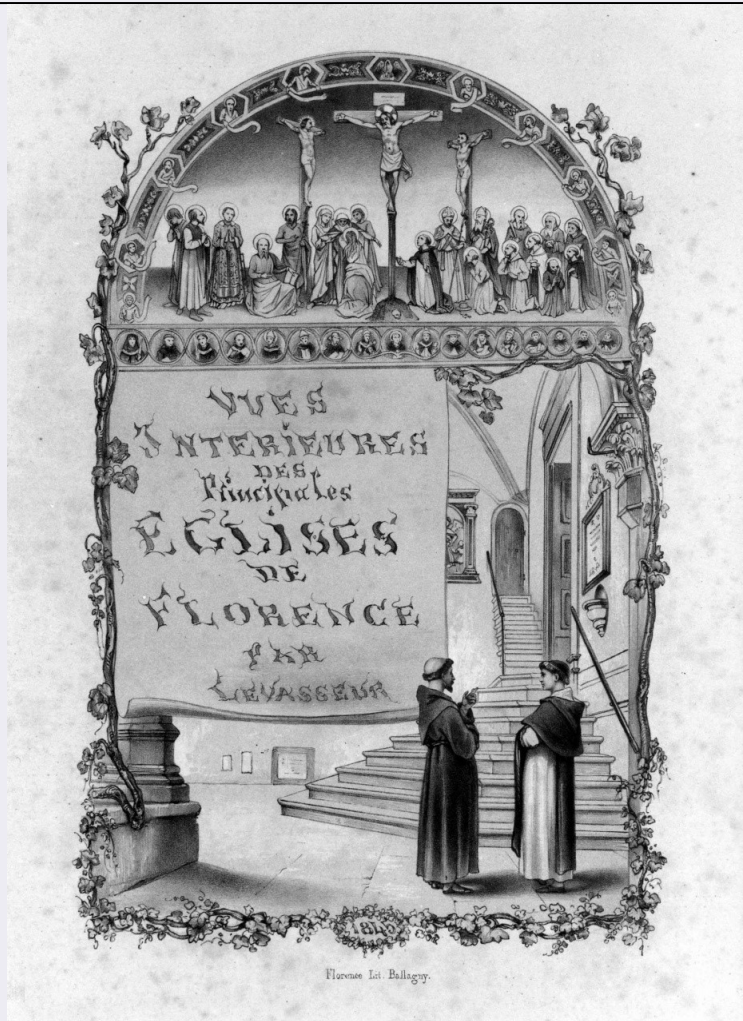 VUES
INTERIEURES
DES
Principales
EGLISES
DE
FLORENCE
PAR
LEVASSEUR
Florence Lit. Ballagny.